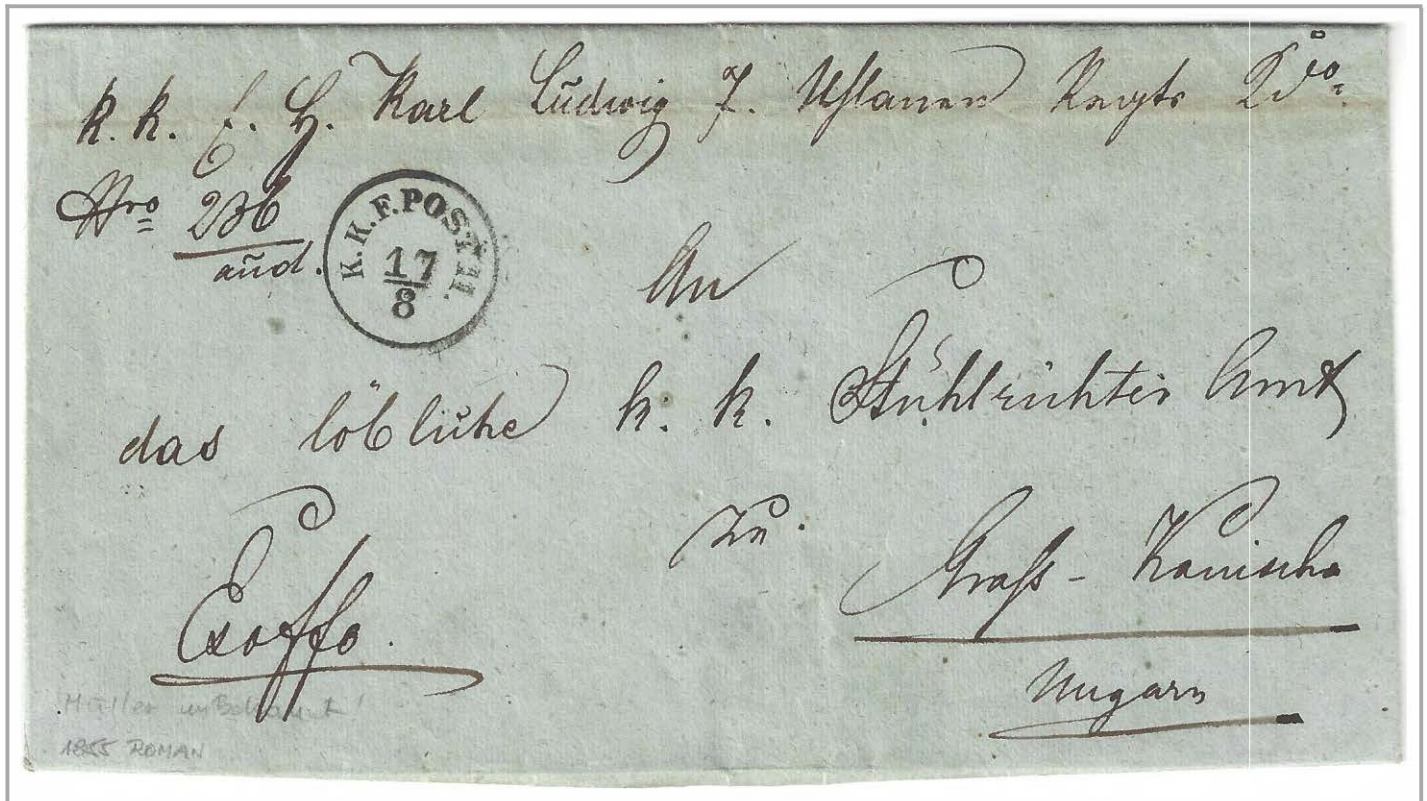 k. k. E. H. Karl Ludwig 7. Uhlanen Regts Kdo.
Nro 236
aud.
K.K.F.POST II.
17
8
An
das löbliche k. k. Stuhlrichter Amt
zu
Groß-Kanischa
Ungarn
Exoffo.
Müller unbekannt!
1855 ROMAN